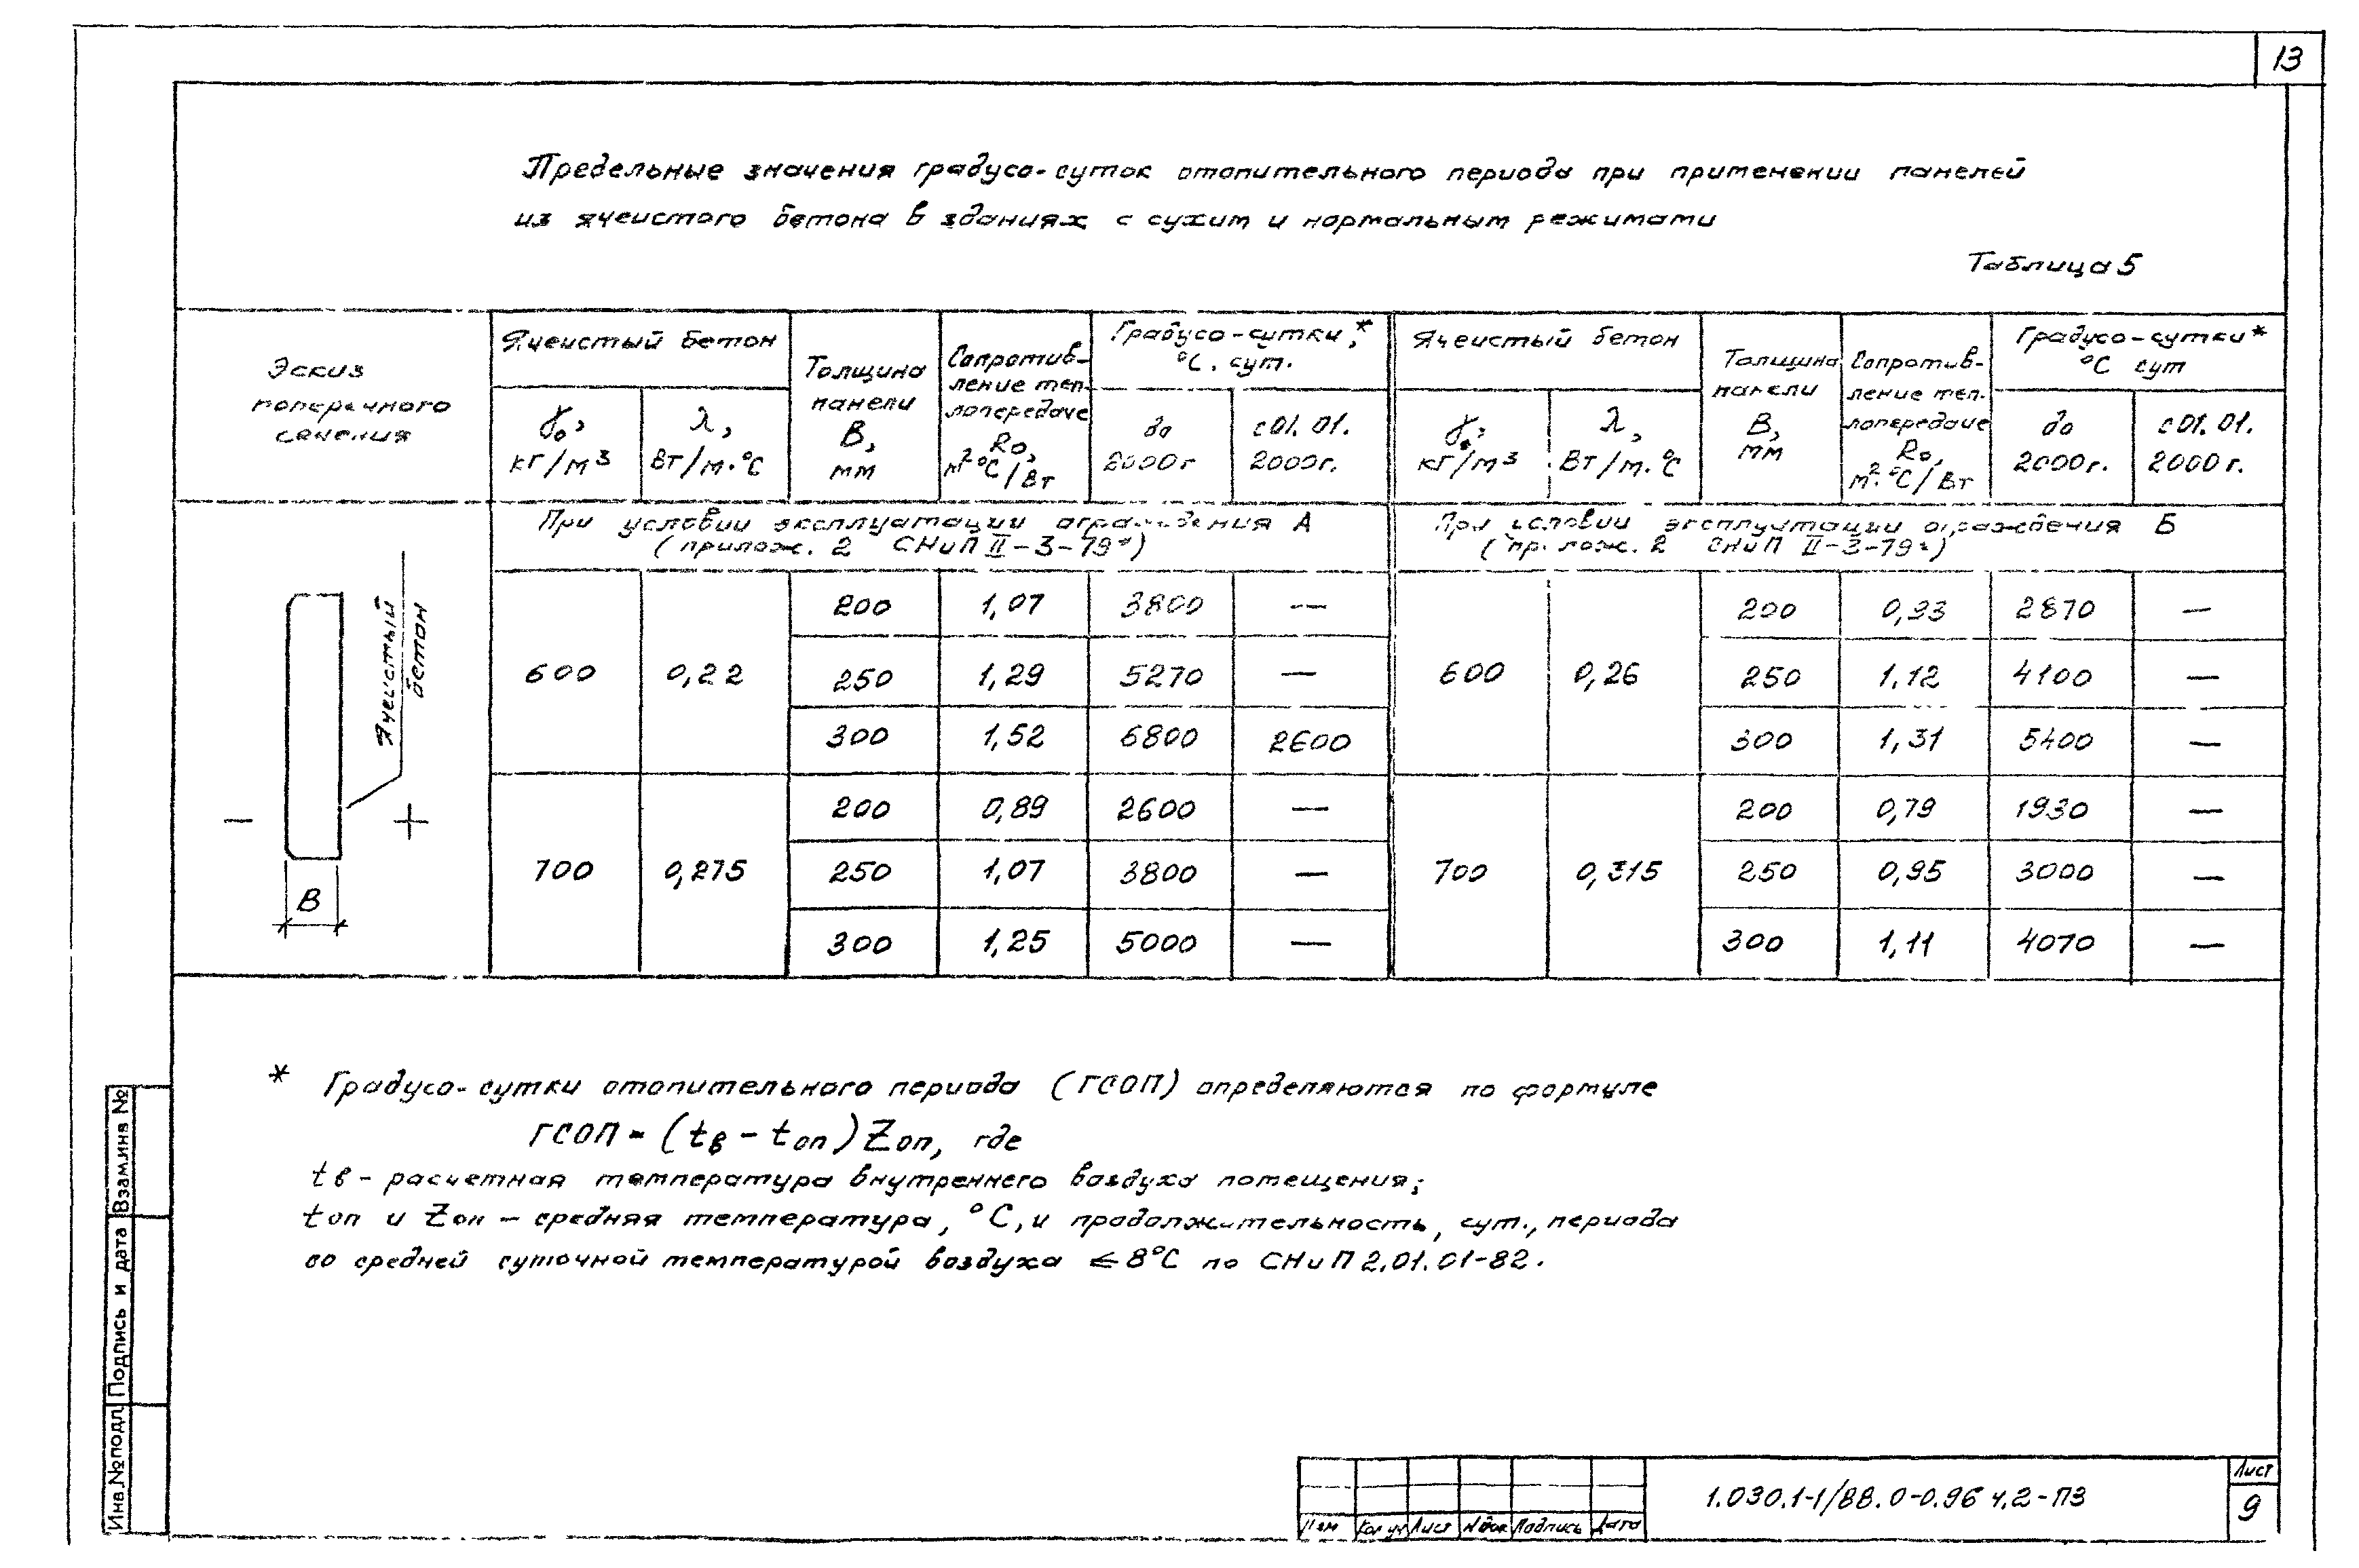 13
Предельные значения градусо-суток отопительного периода при применении панелей
из ячеистого бетона в зданиях с сухим и нормальным режимами
Таблица 5
Эскиз
поперечного
сечения
Ячеистый бетон
γo, кг/м³
λ, Вт/м·°С
Толщина
панели
В,
мм
Сопротив-
ление теп-
лопередаче
Ro,
м²·°С/Вт
Градусо-сутки,*
°С. сут.
до
2000г
с 01.01.
2000г.
Ячеистый бетон
γo, кг/м³
λ, Вт/м·°С
Толщина
панели
В,
мм
Сопротив-
ление теп-
лопередаче
Ro,
м²·°С/Вт
Градусо-сутки*
°С сут
до
2000г.
с 01.01.
2000г.
При условии эксплуатации ограждения А
(прилож. 2 СНиП II-3-79*)
При условии эксплуатации ограждения Б
(прилож. 2 СНиП II-3-79*)
Ячеистый
бетон
− +
В
600 0,22 200 1,07 3800 — 600 0,26 200 0,93 2870 —
250 1,29 5270 — 250 1,12 4100 —
300 1,52 6800 2600 300 1,31 5400 —
700 0,275 200 0,89 2600 — 700 0,315 200 0,79 1930 —
250 1,07 3800 — 250 0,95 3000 —
300 1,25 5000 — 300 1,11 4070 —
* Градусо-сутки отопительного периода (ГСОП) определяются по формуле
ГСОП = (tв - tоп) Zоп, где
tв - расчетная температура внутреннего воздуха помещения;
tоп и Zоп - средняя температура, °С, и продолжительность, сут., периода
со средней суточной температурой воздуха ≤ 8°С по СНиП 2.01.01-82.
Взам.инв №
Подпись и дата
Инв.№подл.
Изм Кол.уч Лист №док Подпись Дата
1.030.1-1/88.0-0.96 ч.2-ПЗ
Лист
9